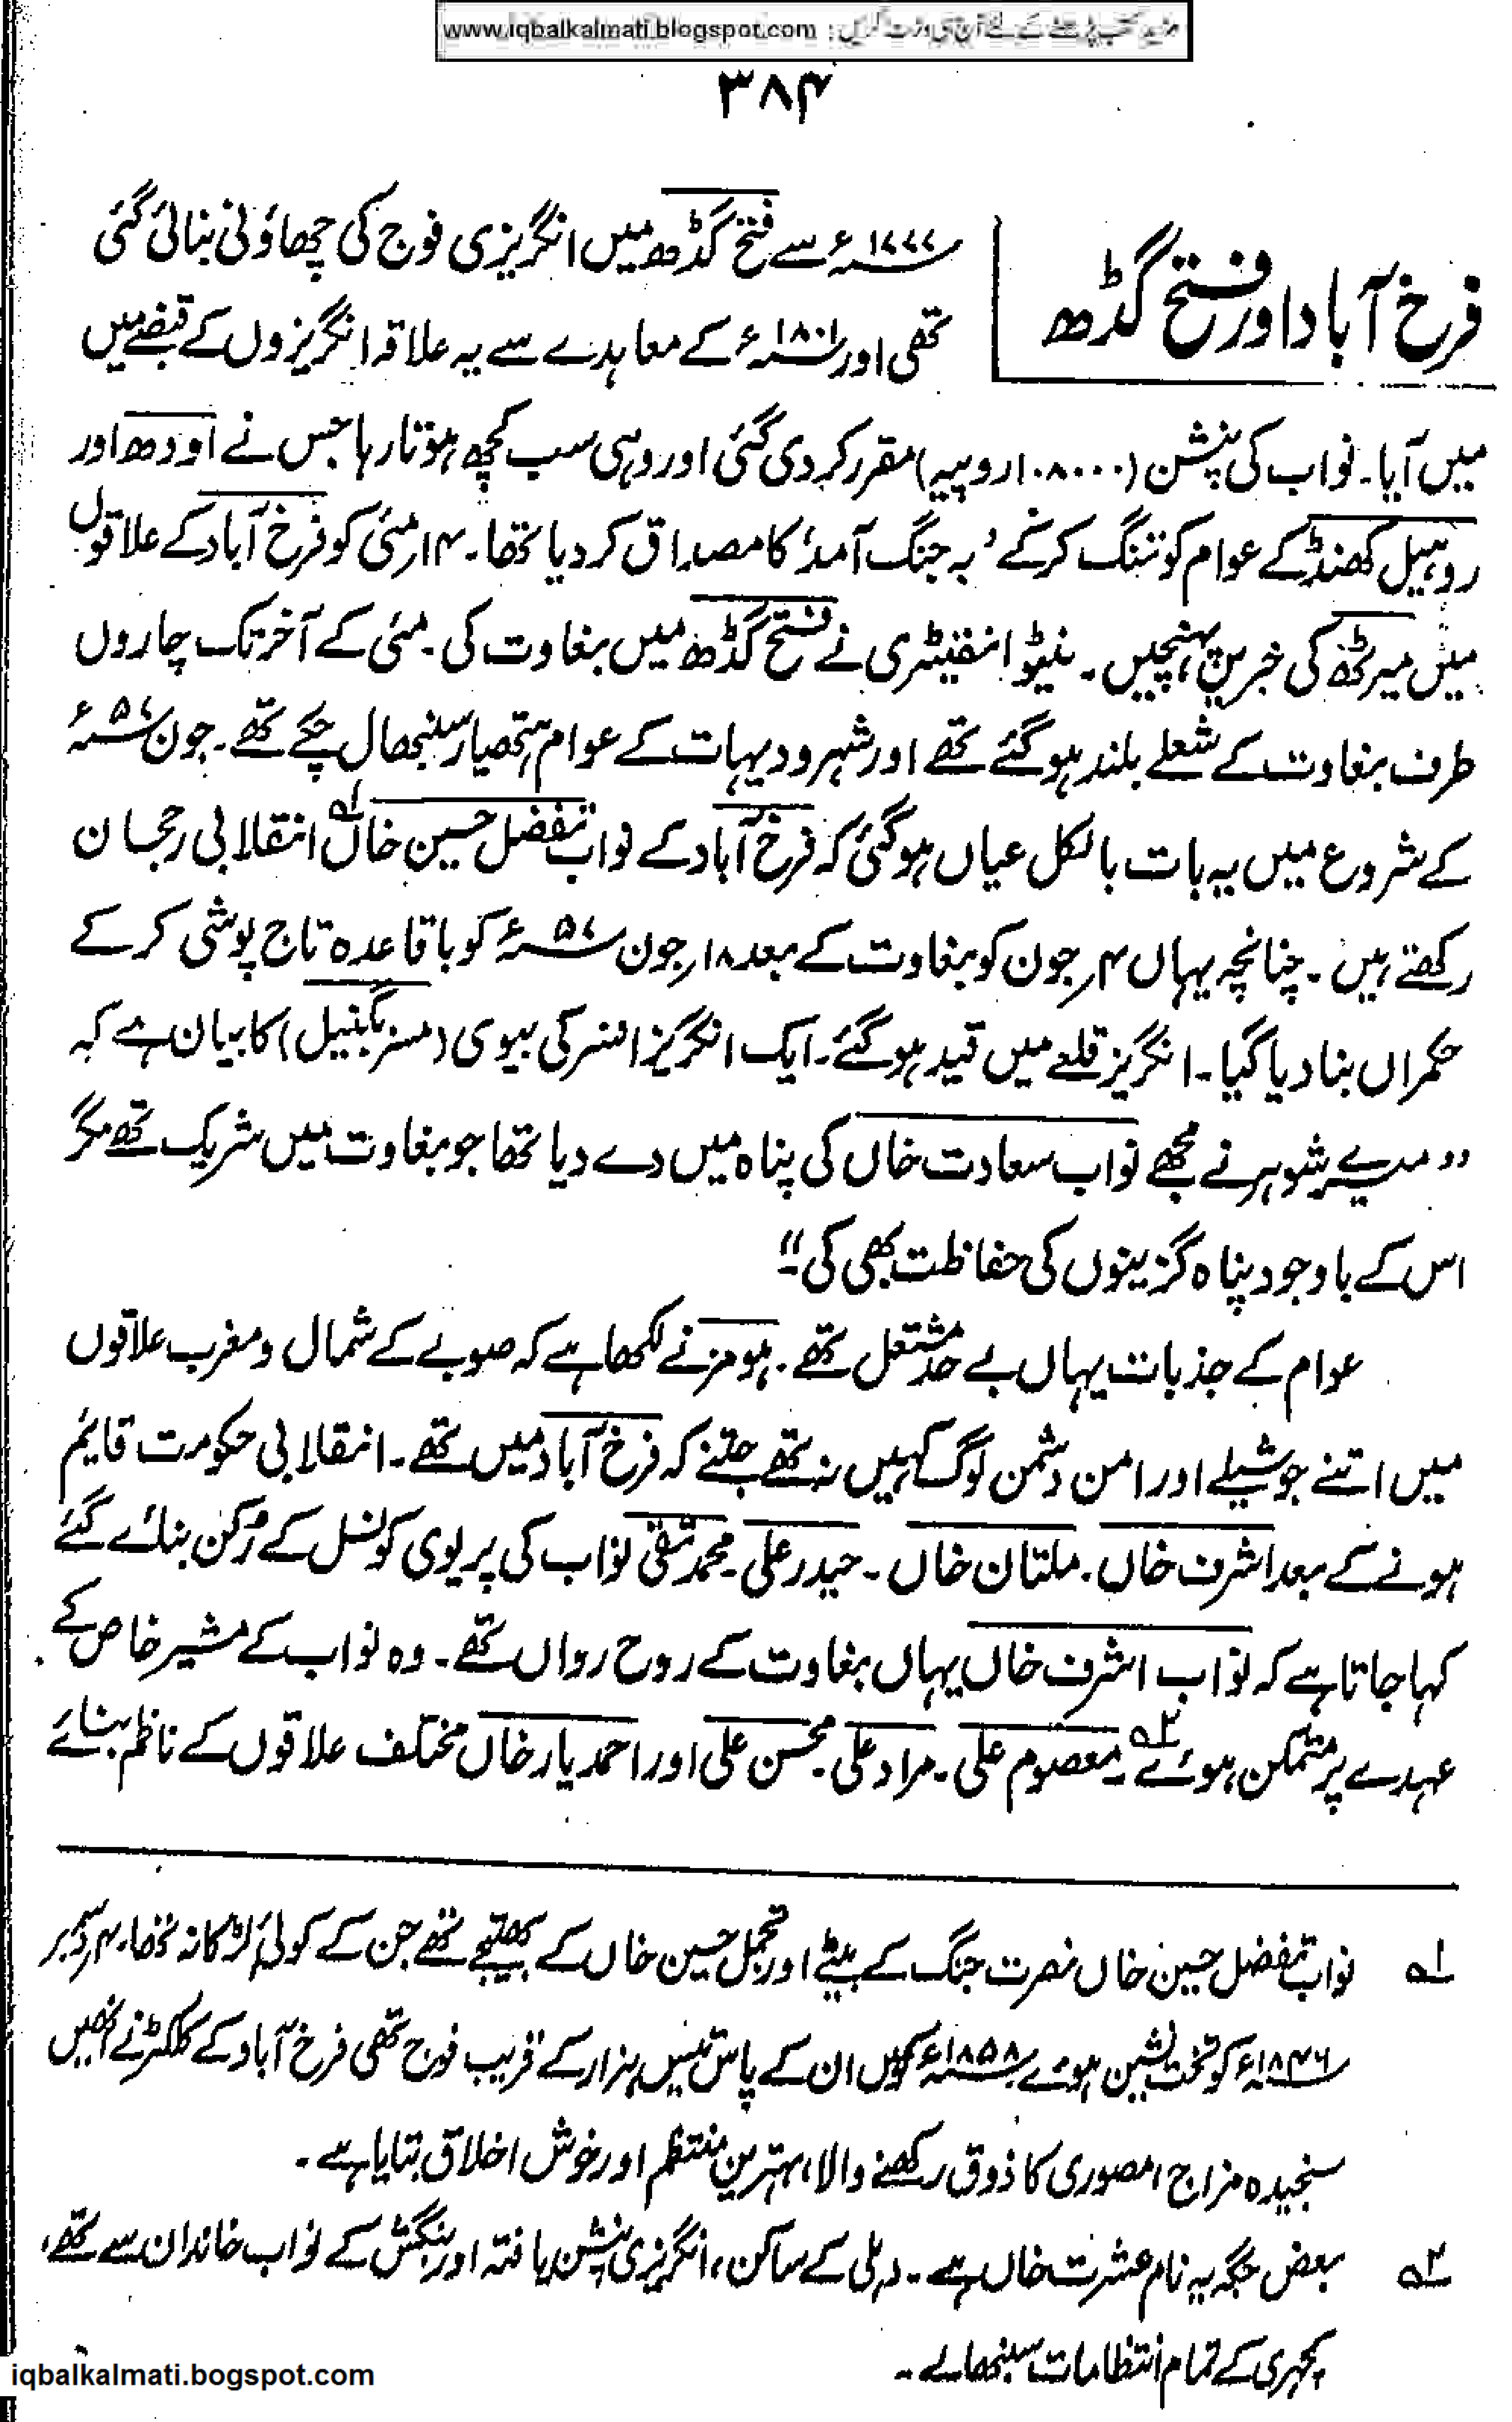 مزید کتب پڑھنے کے لئے آج ہی وزٹ کریں : www.iqbalkalmati.blogspot.com
۳۸۴
فرخ آباد اور فتح گڈھ
۱۷۷۷ء سے فتح گڈھ میں انگریزی فوج کی چھاؤنی بنائی گئی
تھی اور ۱۸۰۱ء کے معاہدے سے یہ علاقہ انگریزوں کے قبضے میں
میں آیا۔ نواب کی پنشن (۱۰۸۰۰۰ روپیہ) مقرر کر دی گئی اور وہی سب کچھ ہوتا رہا جس نے اودھ اور
روہیل کھنڈ کے عوام کو تنگ کر کے ’بہ جنگ آمد‘ کا مصداق کر دیا تھا۔ ۱۴ر مئی کو فرخ آباد کے علاقوں
میں میرٹھ کی خبریں پہنچیں۔ نیٹو انفینٹری نے فتح گڈھ میں بغاوت کی۔ مئی کے آخر تک چاروں
طرف بغاوت کے شعلے بلند ہو گئے تھے اور شہر و دیہات کے عوام ہتھیار سنبھال چکے تھے۔ جون ۵۷ء
کے شروع میں یہ بات بالکل عیاں ہو گئی کہ فرخ آباد کے نواب تفضل حسین خاں ؎۱ انقلابی رجحان
رکھتے ہیں۔ چنانچہ یہاں ۴ر جون کو بغاوت کے بعد ۱۸ر جون ۵۷ء کو باقاعدہ تاج پوشی کر کے
حکمراں بنا دیا گیا۔ انگریز قلعے میں قید ہو گئے۔ ایک انگریز افسر کی بیوی (مسز بگنیل) کا بیان ہے کہ
"میرے شوہر نے مجھے نواب سعادت خاں کی پناہ میں دے دیا تھا جو بغاوت میں شریک تھے مگر
اس کے باوجود پناہ گزینوں کی حفاظت بھی کی۔"
عوام کے جذبات یہاں بے حد مشتعل تھے۔ ہومز نے لکھا ہے کہ صوبے کے شمال و مغرب علاقوں
میں اتنے جوشیلے اور امن دشمن لوگ کہیں نہ تھے جتنے کہ فرخ آباد میں تھے۔ انقلابی حکومت قایم
ہونے کے بعد اشرف خاں۔ ملتان خاں۔ حیدر علی۔ محمد تقی نواب کی پریوی کونسل کے رکن بنائے گئے
کہا جاتا ہے کہ نواب اشرف خاں یہاں بغاوت کے روح رواں تھے۔ وہ نواب کے مشیر خاص کے
عہدے پر متمکن ہوئے۔ ؎۲ معصوم علی۔ مراد علی۔ محسن علی اور احمد یار خاں مختلف علاقوں کے ناظم بنائے
؎۱ نواب تفضل حسین خاں نصرت جنگ کے بیٹے اور تجمل حسین خاں کے بھتیجے تھے جن کے کوئی لڑکا نہ تھا، ۴ر دسمبر
۱۸۴۶ء کو تخت نشین ہوئے ۱۸۵۸ء میں ان کے پاس تیس ہزار کے قریب فوج تھی فرخ آباد کے کلکٹر نے انھیں
سنجیدہ مزاج، مصوری کا ذوق رکھنے والا، بہترین منتظم اور خوش اخلاق بتایا ہے۔
؎۲ بعض جگہ یہ نام عشرت خاں ہے۔ دہلی کے ساکن، انگریزی پنشن یافتہ اور بنگش کے نواب خاندان سے تھے،
کچہری کے تمام انتظامات سنبھالے۔
iqbalkalmati.bogspot.com